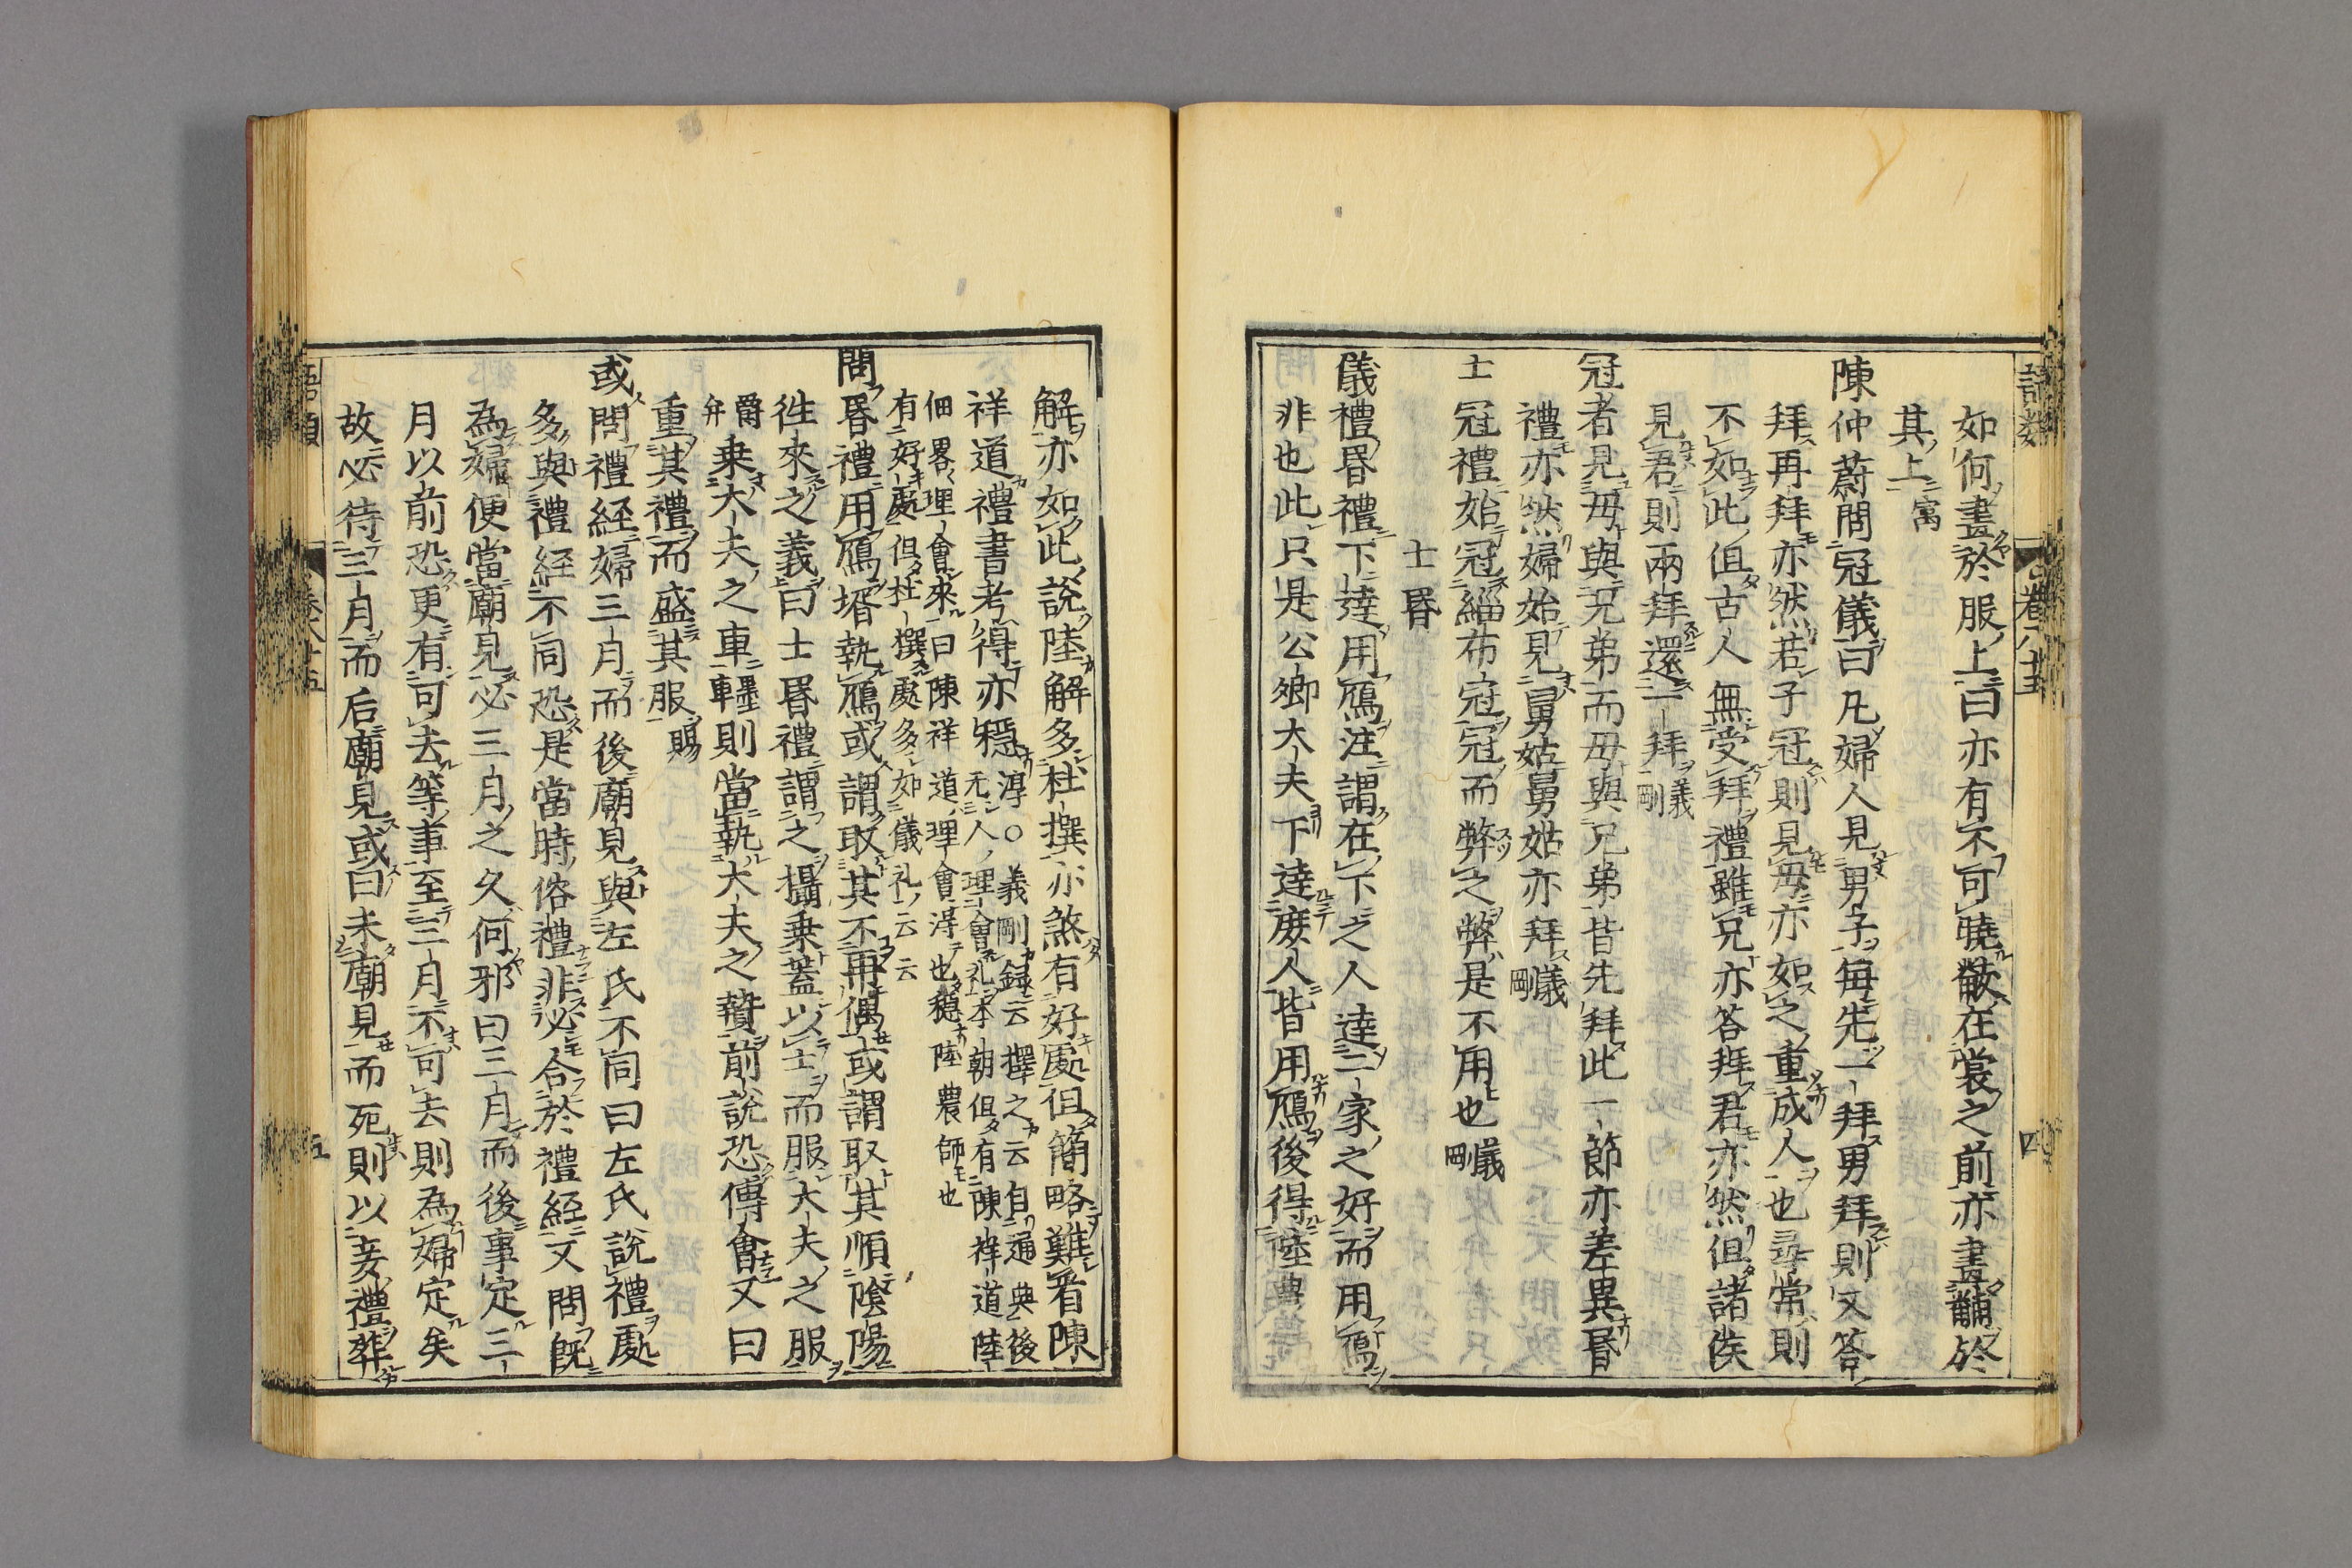 如何畫於服上曰亦有不可曉黻在裳之前亦畫黼於
其上㝢
陳仲蔚問冠儀曰凡婦人見男子每先一拜男拜則又答
拜再拜亦然若子冠則見母亦如之重成人也尋常則
不如此但古人無受拜禮雖兄亦答拜君亦然但諸侯
見君則兩拜還一拜義剛
冠者見母與兄弟而母與兄弟皆先拜此一節亦差異昏
禮亦然婦始見舅姑舅姑亦拜義剛
士冠禮始冠緇布冠冠而弊之弊是不用也義剛
士昏
儀禮昏禮下達用鴈注謂在下之人達二家之好而用鴈
非也此只是公卿大夫下達庶人皆用鴈後得陸農師
解亦如此說陸解多杜撰亦煞有好處但簡略難看陳
祥道禮書考得亦穩淳○義剛録云擇之云自通典後
无人理會礼本朝但有陳祥道陸
佃畧理會來曰陳祥道理會得也穩陸農師也
有好處但杜撰處多如儀礼云云
問昏禮用鴈壻執鴈或謂取其不再偶或謂取其順陰陽
徃來之義曰士昏禮謂之攝乗蓋以士而服大夫之服
爵弁乗大夫之車墨車則當執大夫之贄前說恐傅會又曰
重其禮而盛其服賜
或問禮經婦三月而後廟見與左氏不同曰左氏說禮處
多與禮經不同恐是當時俗禮非必合於禮經又問既
為婦便當廟見必三月之久何邪曰三月而後事定三
月以前恐更有可去等事至三月不可去則為婦定矣
故必待三月而后廟見或曰未廟見而死則以妾禮葬
語類
卷八十五
四
語類
卷八十五
五